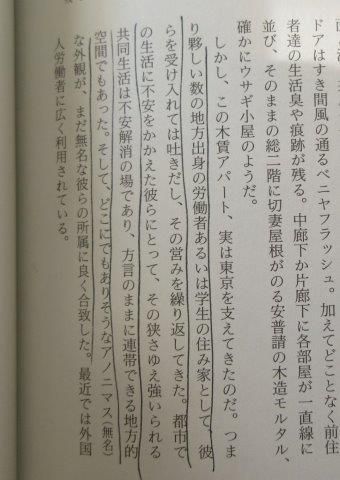 ドアはすき間風の通るベニヤフラッシュ。加えてどことなく前住
者達の生活臭や痕跡が残る。中廊下か片廊下に各部屋が一直線に
並び、そのままの総二階に切妻屋根がのる安普請の木造モルタル、
確かにウサギ小屋のようだ。
しかし、この木賃アパート、実は東京を支えてきたのだ。つま
り夥しい数の地方出身の労働者あるいは学生の住み家として、彼
らを受け入れては吐きだし、その営みを繰り返してきた。都市で
の生活に不安をかかえた彼らにとって、その狭さゆえ強いられる
共同生活は不安解消の場であり、方言のままに連帯できる地方的
空間でもあった。そして、どこにでもありそうなアノニマス(無名)
な外観が、まだ無名な彼らの所属に良く合致した。最近では外国
人労働者に広く利用されている。